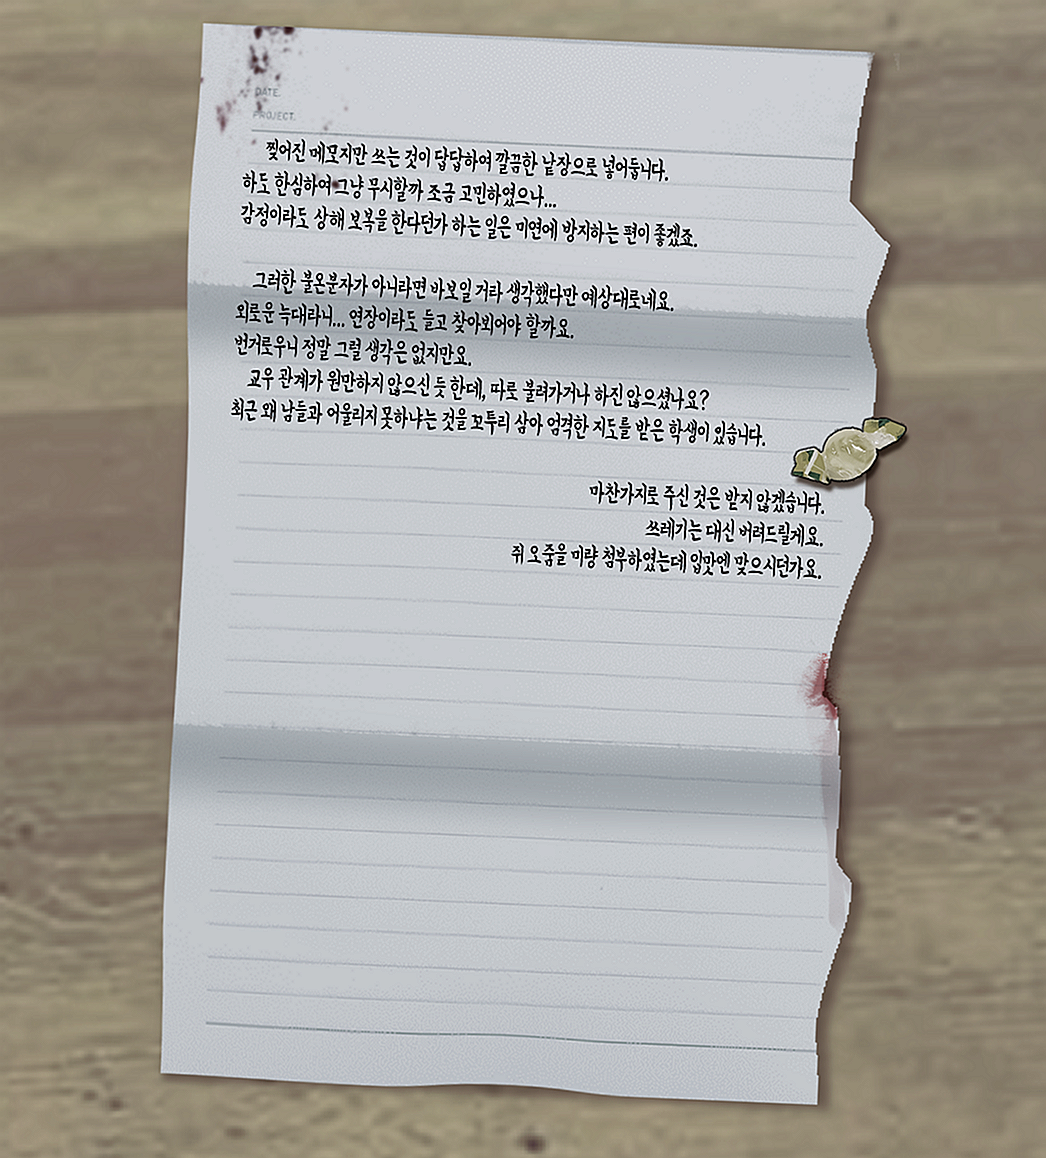 DATE.
PROJECT.
찢어진 메모지만 쓰는 것이 답답하여 깔끔한 낱장으로 넣어둡니다.
하도 한심하여 그냥 무시할까 조금 고민하였으나...
감정이라도 상해 보복을 한다던가 하는 일은 미연에 방지하는 편이 좋겠죠.
그러한 불온분자가 아니라면 바보일 거라 생각했다만 예상대로네요.
외로운 늑대라니... 연장이라도 들고 찾아뵈어야 할까요.
번거로우니 정말 그럴 생각은 없지만요.
교우 관계가 원만하지 않으신 듯 한데, 따로 불려가거나 하진 않으셨나요?
최근 왜 남들과 어울리지 못하냐는 것을 꼬투리 삼아 엄격한 지도를 받은 학생이 있습니다.
마찬가지로 주신 것은 받지 않겠습니다.
쓰레기는 대신 버려드릴게요.
쥐 오줌을 미량 첨부하였는데 입맛엔 맞으시던가요.